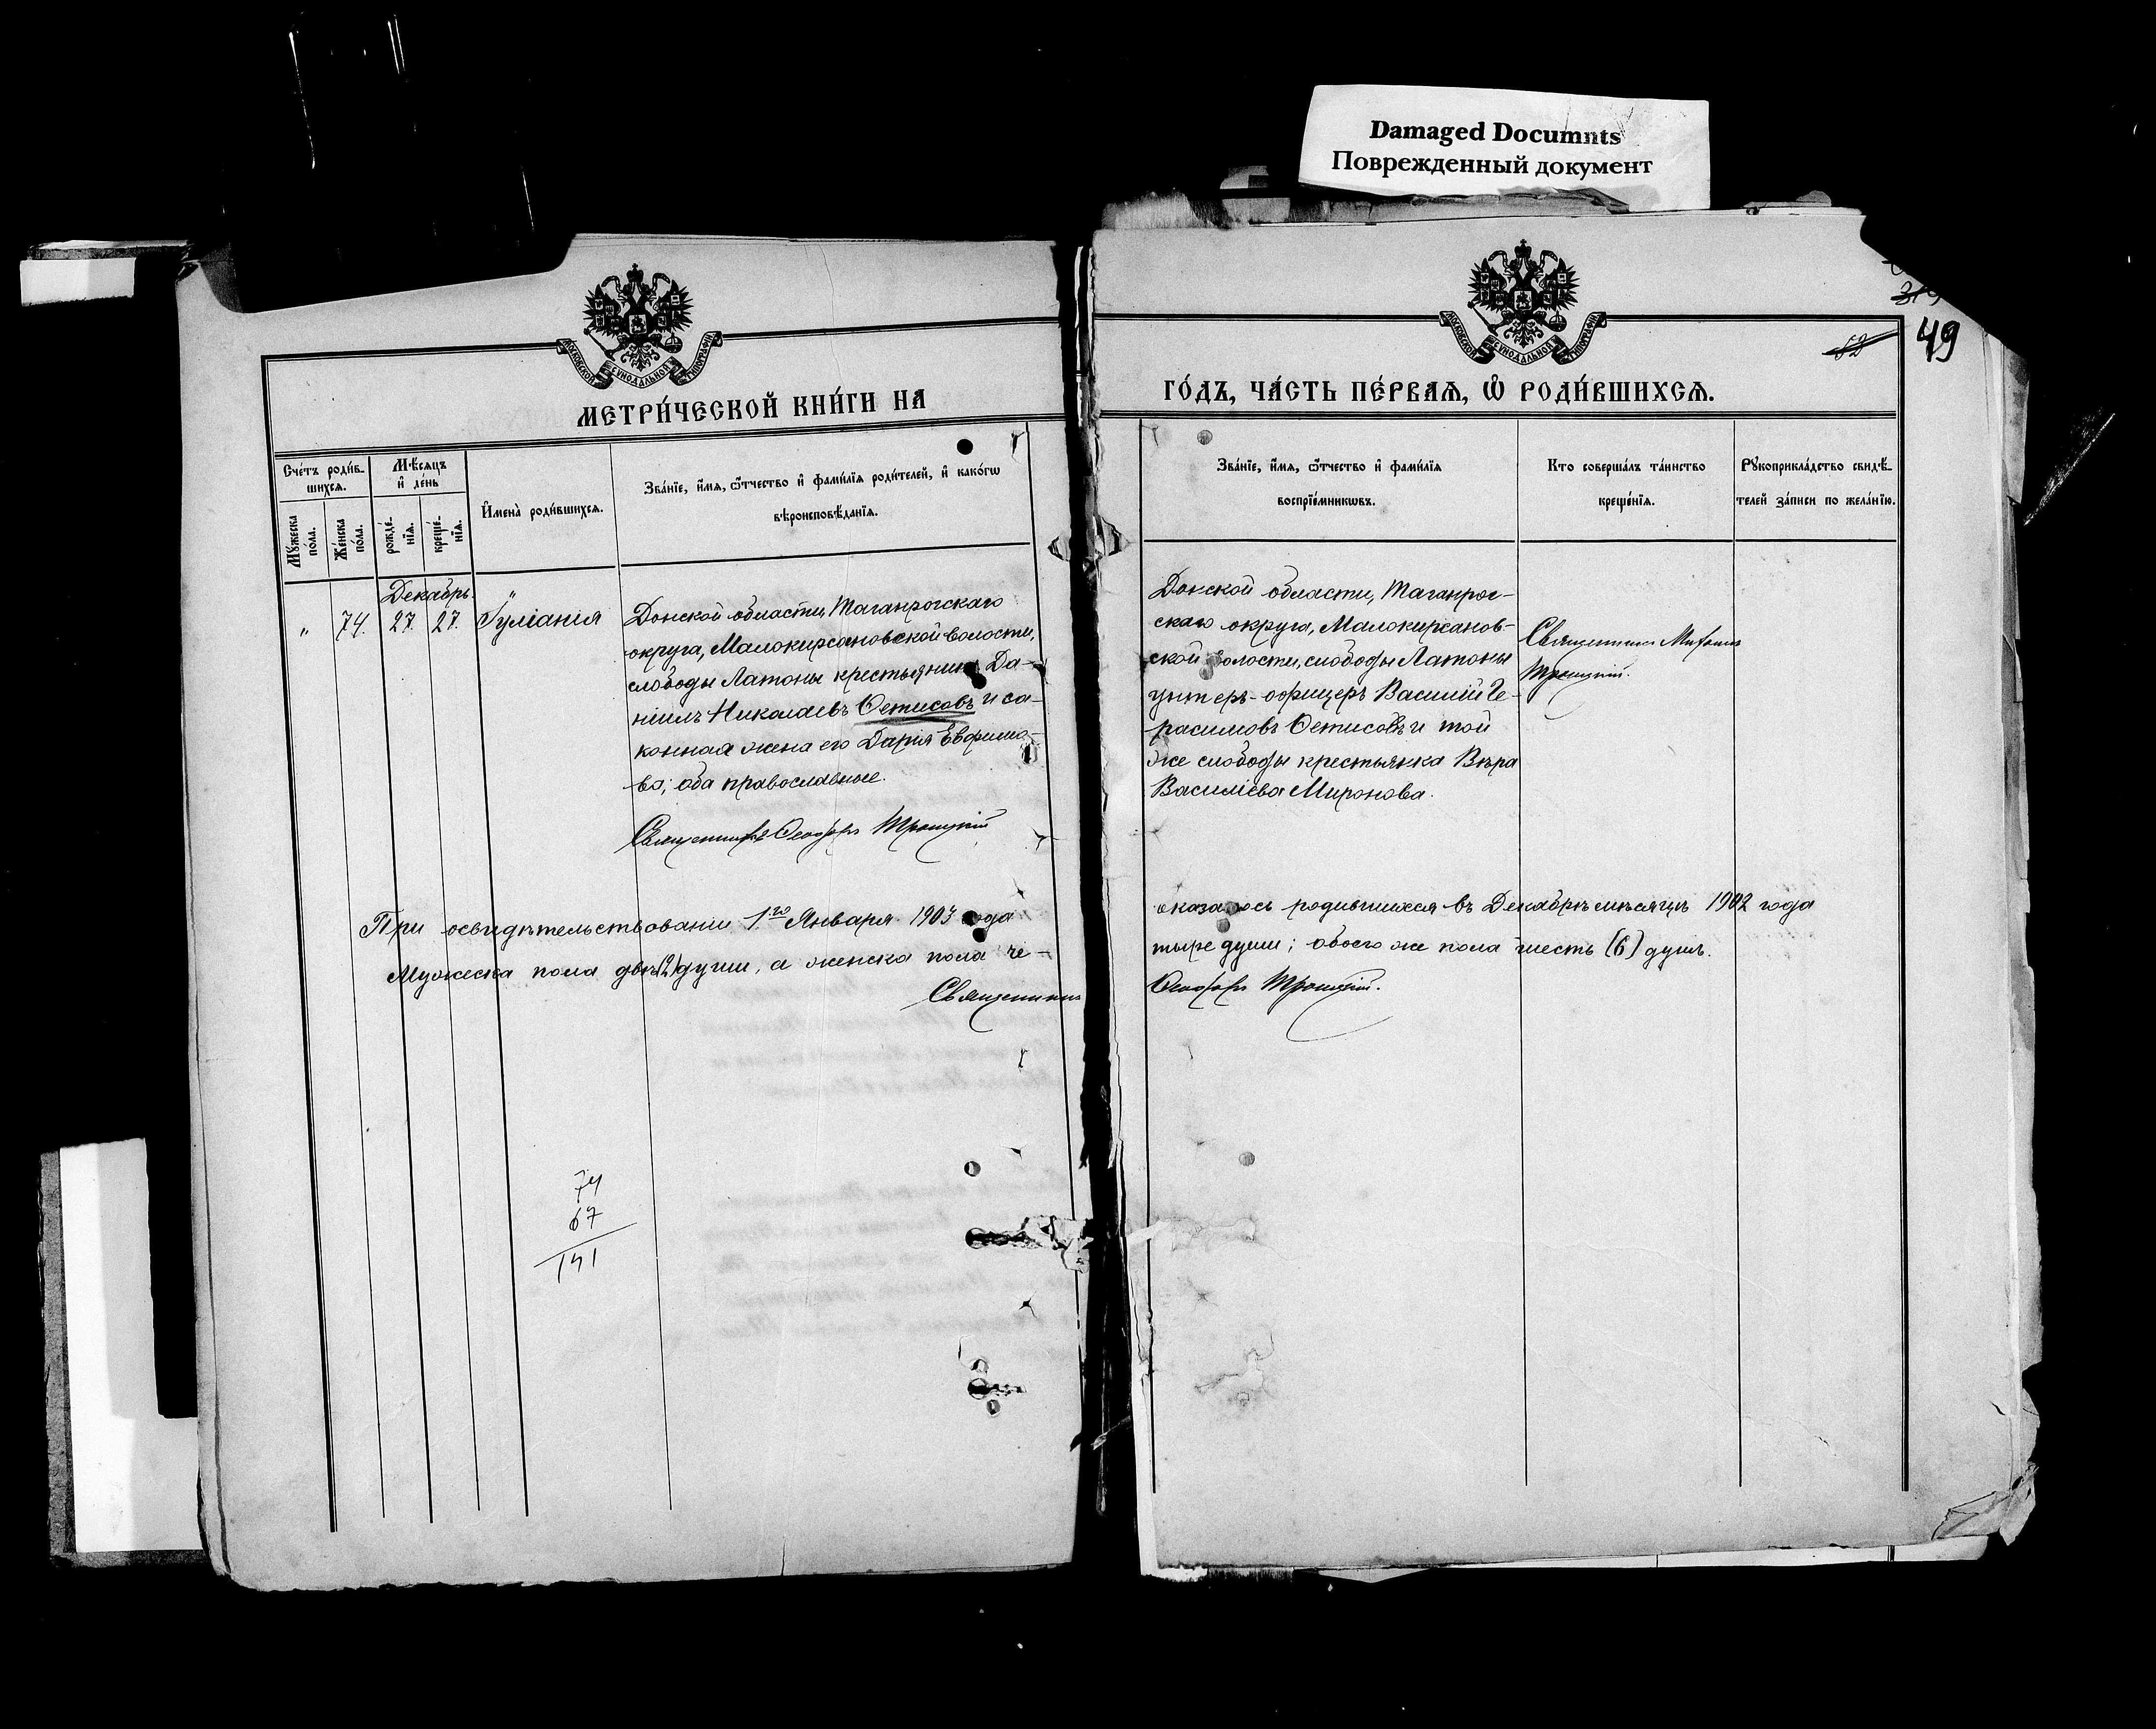 Damaged Documnts
Поврежденный документ
49
МОСКОВСКОЙ СѴНОДАЛЬНОЙ ТИПОГРАФІИ
МОСКОВСКОЙ СѴНОДАЛЬНОЙ ТИПОГРАФІИ
МЕТРИ́ЧЕСКОЙ КНИ́ГИ НА
ГО́ДЪ, ЧА́СТЬ ПЕ́РВАѦ, Ѡ҆ РОДИ́ВШИХСѦ.
Сче́тъ роди́в-
шихсѧ.
Мѹ́жеска по́ла.
Же́нска по́ла.
Мѣ́сѧцъ
и҆ де́нь
рожде́-
нїѧ.
креще́-
нїѧ.
И҆мена̀ роди́вшихсѧ.
Зва́нїе, и҆́мѧ, ѻ҆́тчество и҆ фами́лїѧ роди́телей, и҆ како́гѡ
вѣроисповѣ́данїѧ.
Зва́нїе, и҆́мѧ, ѻ҆́тчество и҆ фами́лїѧ
воспрїе́мникѡвъ.
Кто̀ соверша́лъ та́инство
креще́нїѧ.
Рѹкоприкла́дство свидѣ́-
телей за́писи по жела́нїю.
Декабрь.
" 74. 27. 27. Іуліанія
Донской области, Таганрогскаго
округа, Малокирсановской волости,
слободы Латоны крестьянинъ Да-
ніилъ Николаевъ Ѳетисовъ и за-
конная жена его Дарія Евфимо-
ва; оба православные.
Священникъ Ѳеодоръ Троицкій
Донской области, Таганрог-
скаго округа, Малокирсанов-
ской волости, слободы Латоны
унтеръ-офицеръ Василій Ге-
расимовъ Ѳетисовъ и той
же слободы крестьянка Вѣра
Василіева Миронова.
Священникъ
Троицкій.
При освидѣтельствованіи 1го Января 1903 года
оказалось родившихся въ Декабрѣ мѣсяцѣ 1902 года
Мужеска пола двѣ (2) души, а женска пола че-
тыре души; обоего же пола шесть (6) душъ.
Священникъ
Ѳеодоръ Троицкій.
74
67
141